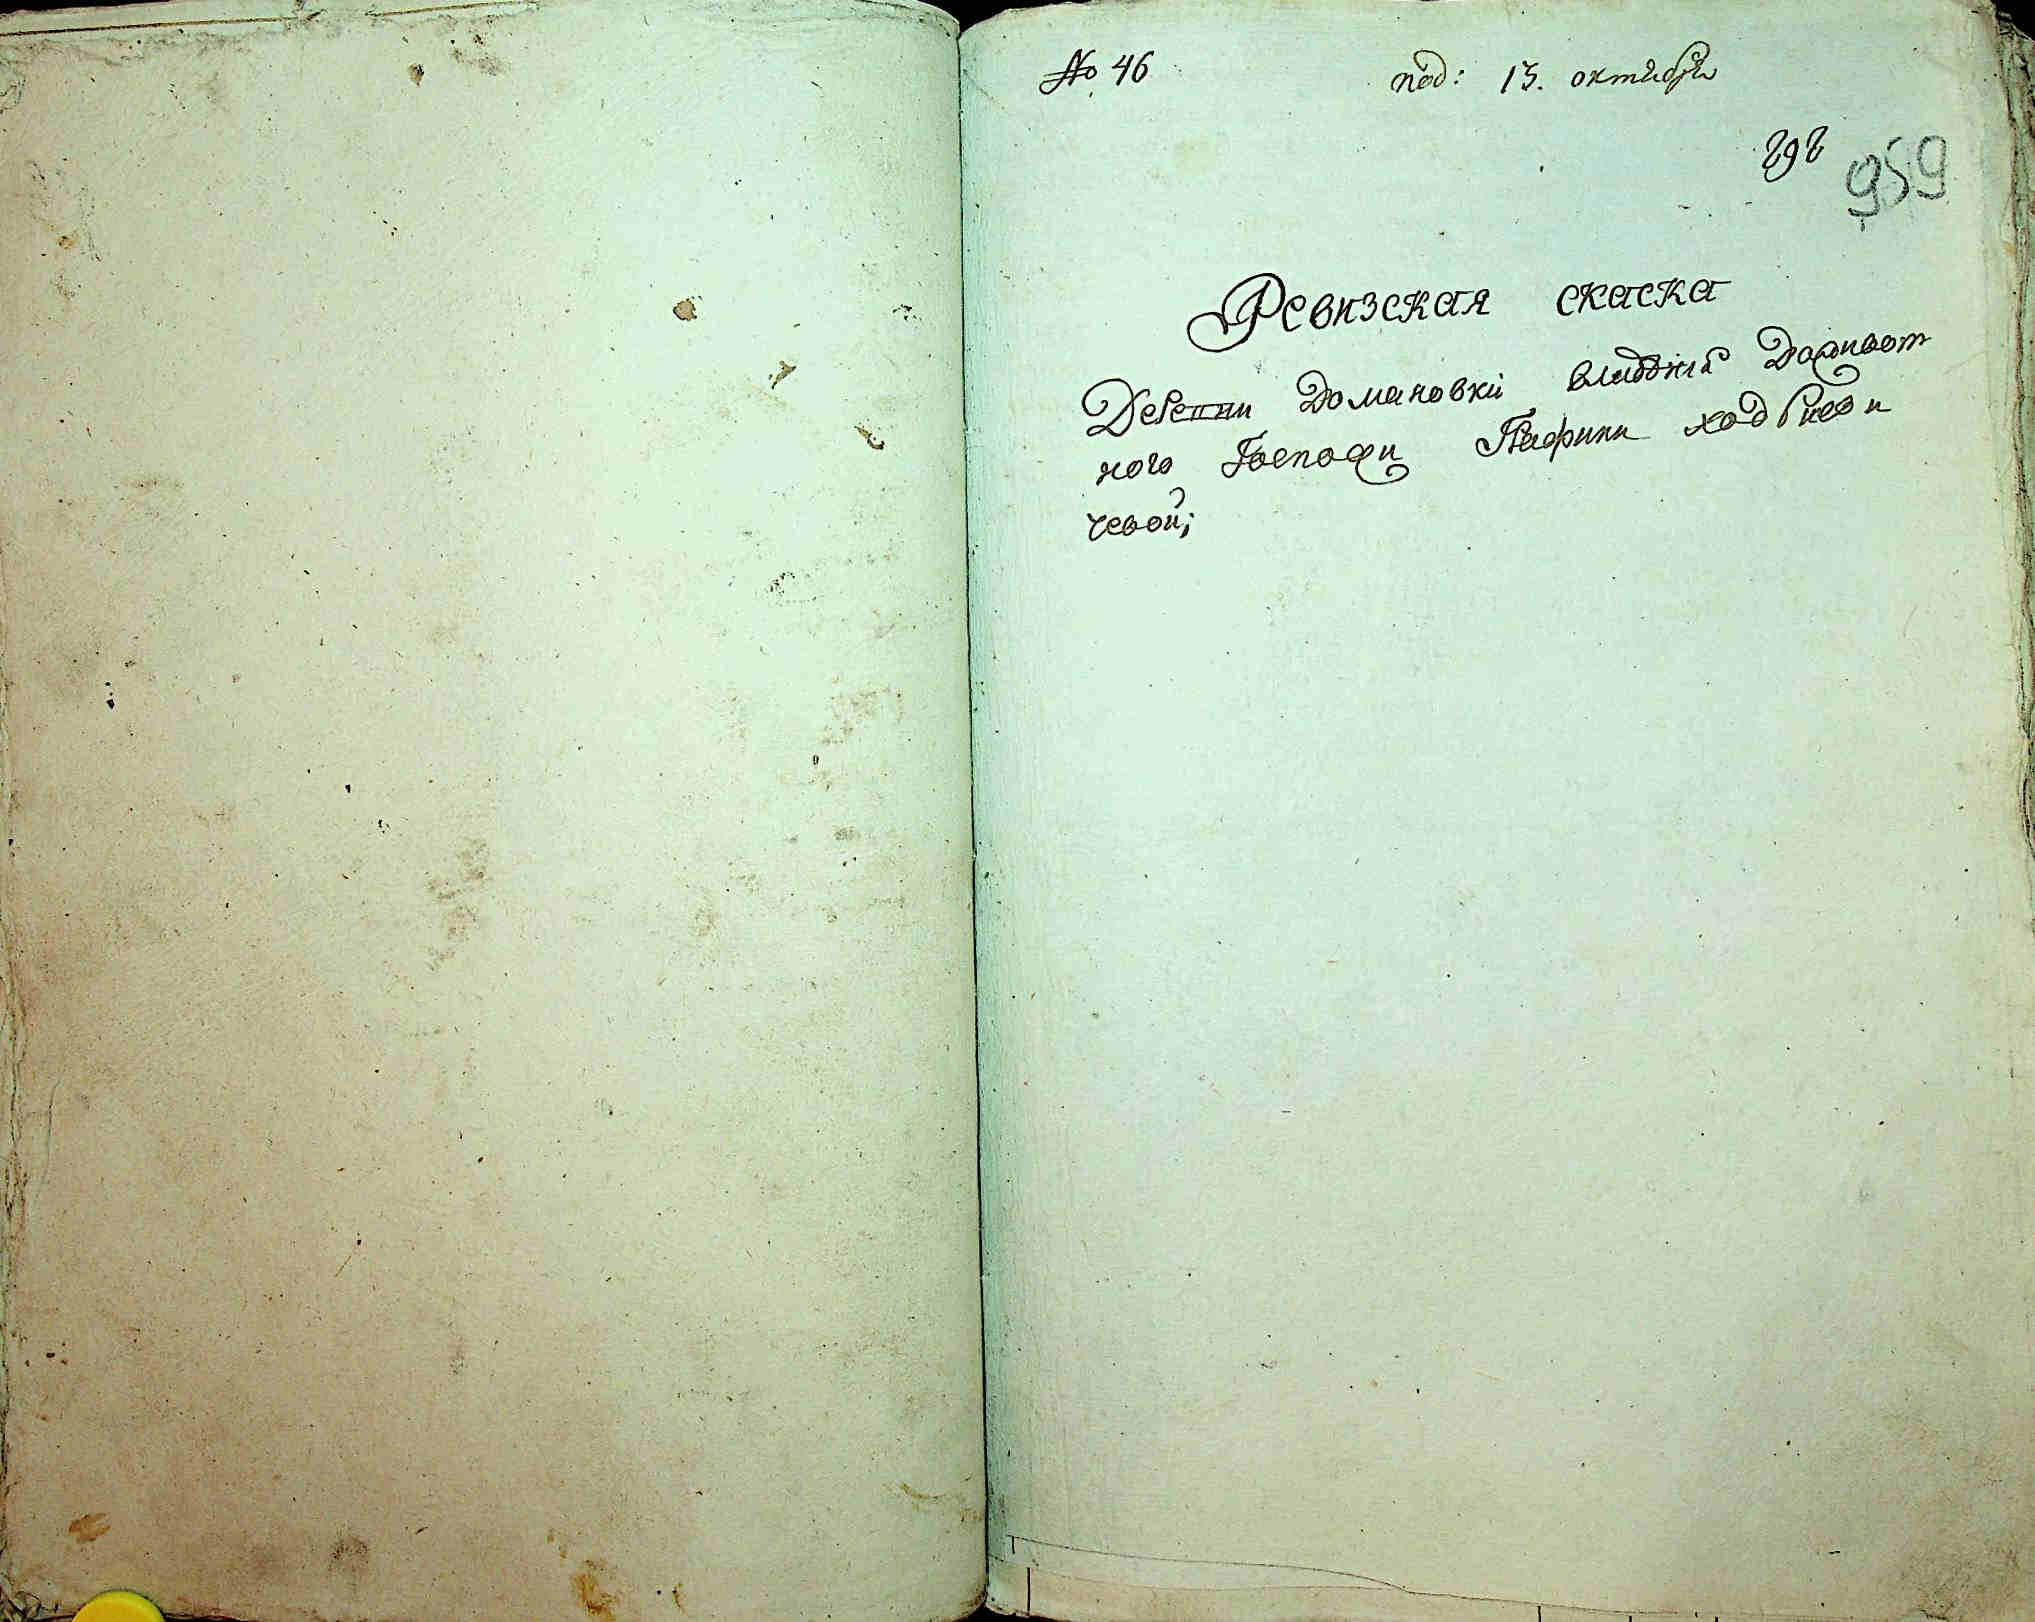 № 46 под: 13. октября
898
959
Ревизская скаска
Деревни Домановки владения Доживот
ного Госпожи ходкиеви
чевой;